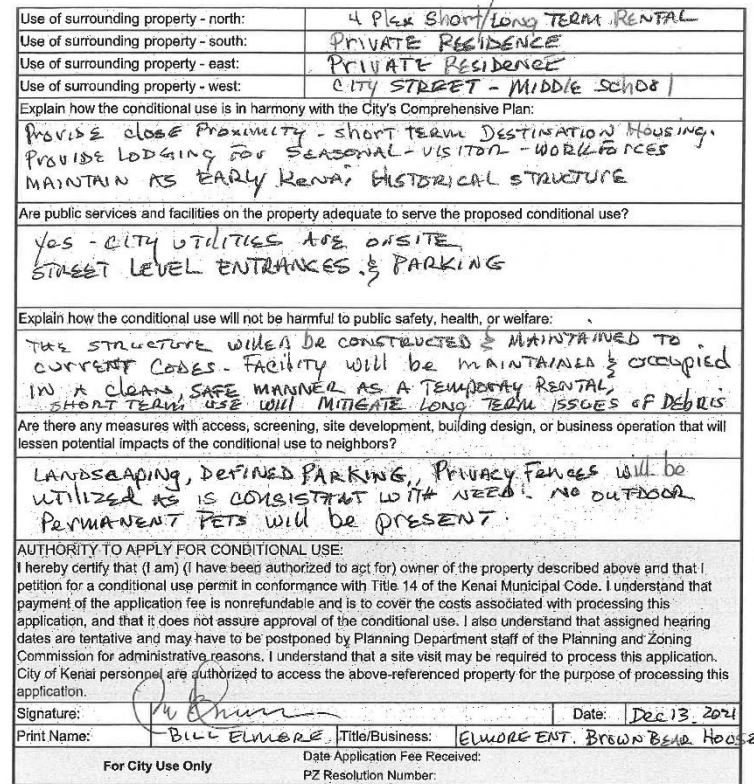 Use of surrounding property - north: 4 Plex Short/Long TERM RENTAL
Use of surrounding property - south: PRIVATE RESIDENCE
Use of surrounding property - east: PRIVATE RESIDENCE
Use of surrounding property - west: CITY STREET - MIDDLE SCHOOl
Explain how the conditional use is in harmony with the City's Comprehensive Plan:
PROVIDE close PROXIMITY - SHORT TERM DESTINATION HOUSING.
PROVIDE LODGING FOR SEASONAL - VISITOR - WORKFORCES
MAINTAIN AS EARLY KENAI HISTORICAL STRUCTURE
Are public services and facilities on the property adequate to serve the proposed conditional use?
Yes - CITY UTILITIES ARE ONSITE
STREET LEVEL ENTRANCES & PARKING
Explain how the conditional use will not be harmful to public safety, health, or welfare:
THE STRUCTURE be CONSTRUCTED & MAINTAINED TO
CURRENT CODES - FACILITY will be MAINTAINED & OCCUPIED
IN A CLEAN, SAFE MANNER AS A TEMPORAY RENTAL,
SHORT TERM USE WILL MITIGATE LONG TERM ISSUES OF DEBRIS
Are there any measures with access, screening, site development, building design, or business operation that will
lessen potential impacts of the conditional use to neighbors?
LANDSCAPING, DEFINED PARKING, PRIVACY FENCES will be
UTILIZED AS IS CONSISTANT WITH NEED. NO OUTDOOR
PERMANENT PETS will be PRESENT.
AUTHORITY TO APPLY FOR CONDITIONAL USE:
I hereby certify that (I am) (I have been authorized to act for) owner of the property described above and that I
petition for a conditional use permit in conformance with Title 14 of the Kenai Municipal Code. I understand that
payment of the application fee is nonrefundable and is to cover the costs associated with processing this
application, and that it does not assure approval of the conditional use. I also understand that assigned hearing
dates are tentative and may have to be postponed by Planning Department staff of the Planning and Zoning
Commission for administrative reasons. I understand that a site visit may be required to process this application.
City of Kenai personnel are authorized to access the above-referenced property for the purpose of processing this
application.
Signature: Date: Dec 13 2021
Print Name: BILL ELMORE Title/Business: ELMORE ENT. BROWN BEAR HOUSE
For City Use Only Date Application Fee Received:
PZ Resolution Number: